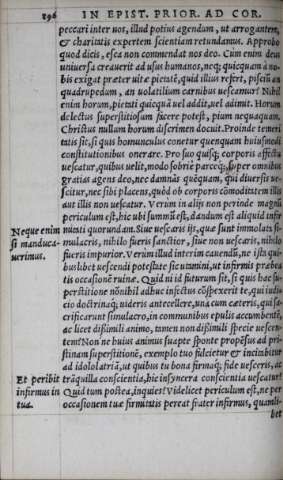 296 IN EPIST. PRIOR. AD COR.
peccari inter uos, illud potius agendum, ut arrogantem,
& charitatis expertem scientiam retundamus. Approbo
quod dicis, esca non commendat nos deo. Cum enim deus
uniuersa creauerit ad usus humanos, neq; quicquam à no-
bis exigat præter uitæ pietatē, quid illius refert, pisciū an
quadrupedum, an uolatilium carnibus uescamur? Nihil
enim horum, pietati quicquā uel addit, uel adimit. Horum
delectus superstitiosum facere potest, pium nequaquam.
Christus nullum horum discrimen docuit. Proinde temeri
tatis sit, si quis homunculus conetur quenquam huiusmodi
constitutionibus onerare. Pro suo quisq; corporis affectu
uescatur, quibus uelit, modo sobriè parceq; super omnibus
gratias agens deo, nec damnās quēquam, qui diuersis ue-
scitur, nec sibi placens, quòd ob corporis cōmoditatem illis
aut illis non uescatur. Verum in alijs non perinde magnū
periculum est, hic ubi summū est, dandum est aliquid infir
Neque enim
si manduca-
uerimus.
mitati quorundam. Siue uescaris ijs, quæ sunt immolata si-
mulacris, nihilo fueris sanctior, siue non uescaris, nihilo
fueris impurior. Verum illud interim cauendū, ne ista qui-
buslibet uescendi potestate sic utamini, ut infirmis præbea
tis occasionē ruinæ. Quid ni id futurum sit, si quis hac su-
perstitione nōnihil adhuc infectus cōspexerit te, qui iudi-
cio doctrinaq; uideris antecellere, unà cum cæteris, qui sa-
crificarunt simulacro, in communibus epulis accumbentē,
ac licet dissimili animo, tamen non dissimili specie uescen-
tem? Non ne huius animus suapte sponte propēsus ad pri-
stinam superstitionē, exemplo tuo fulcietur & incitabitur
ad idololatriā, ut quibus tu bona firmaq; fide uesceris, ac
Et peribit
infirmus in
tua.
trāquilla conscientia, hic insyncera conscientia uescatur?
Quid tum postea, inquies? Videlicet periculum est, ne per
occasionem tuæ firmitatis pereat frater infirmus, quamli-
bet